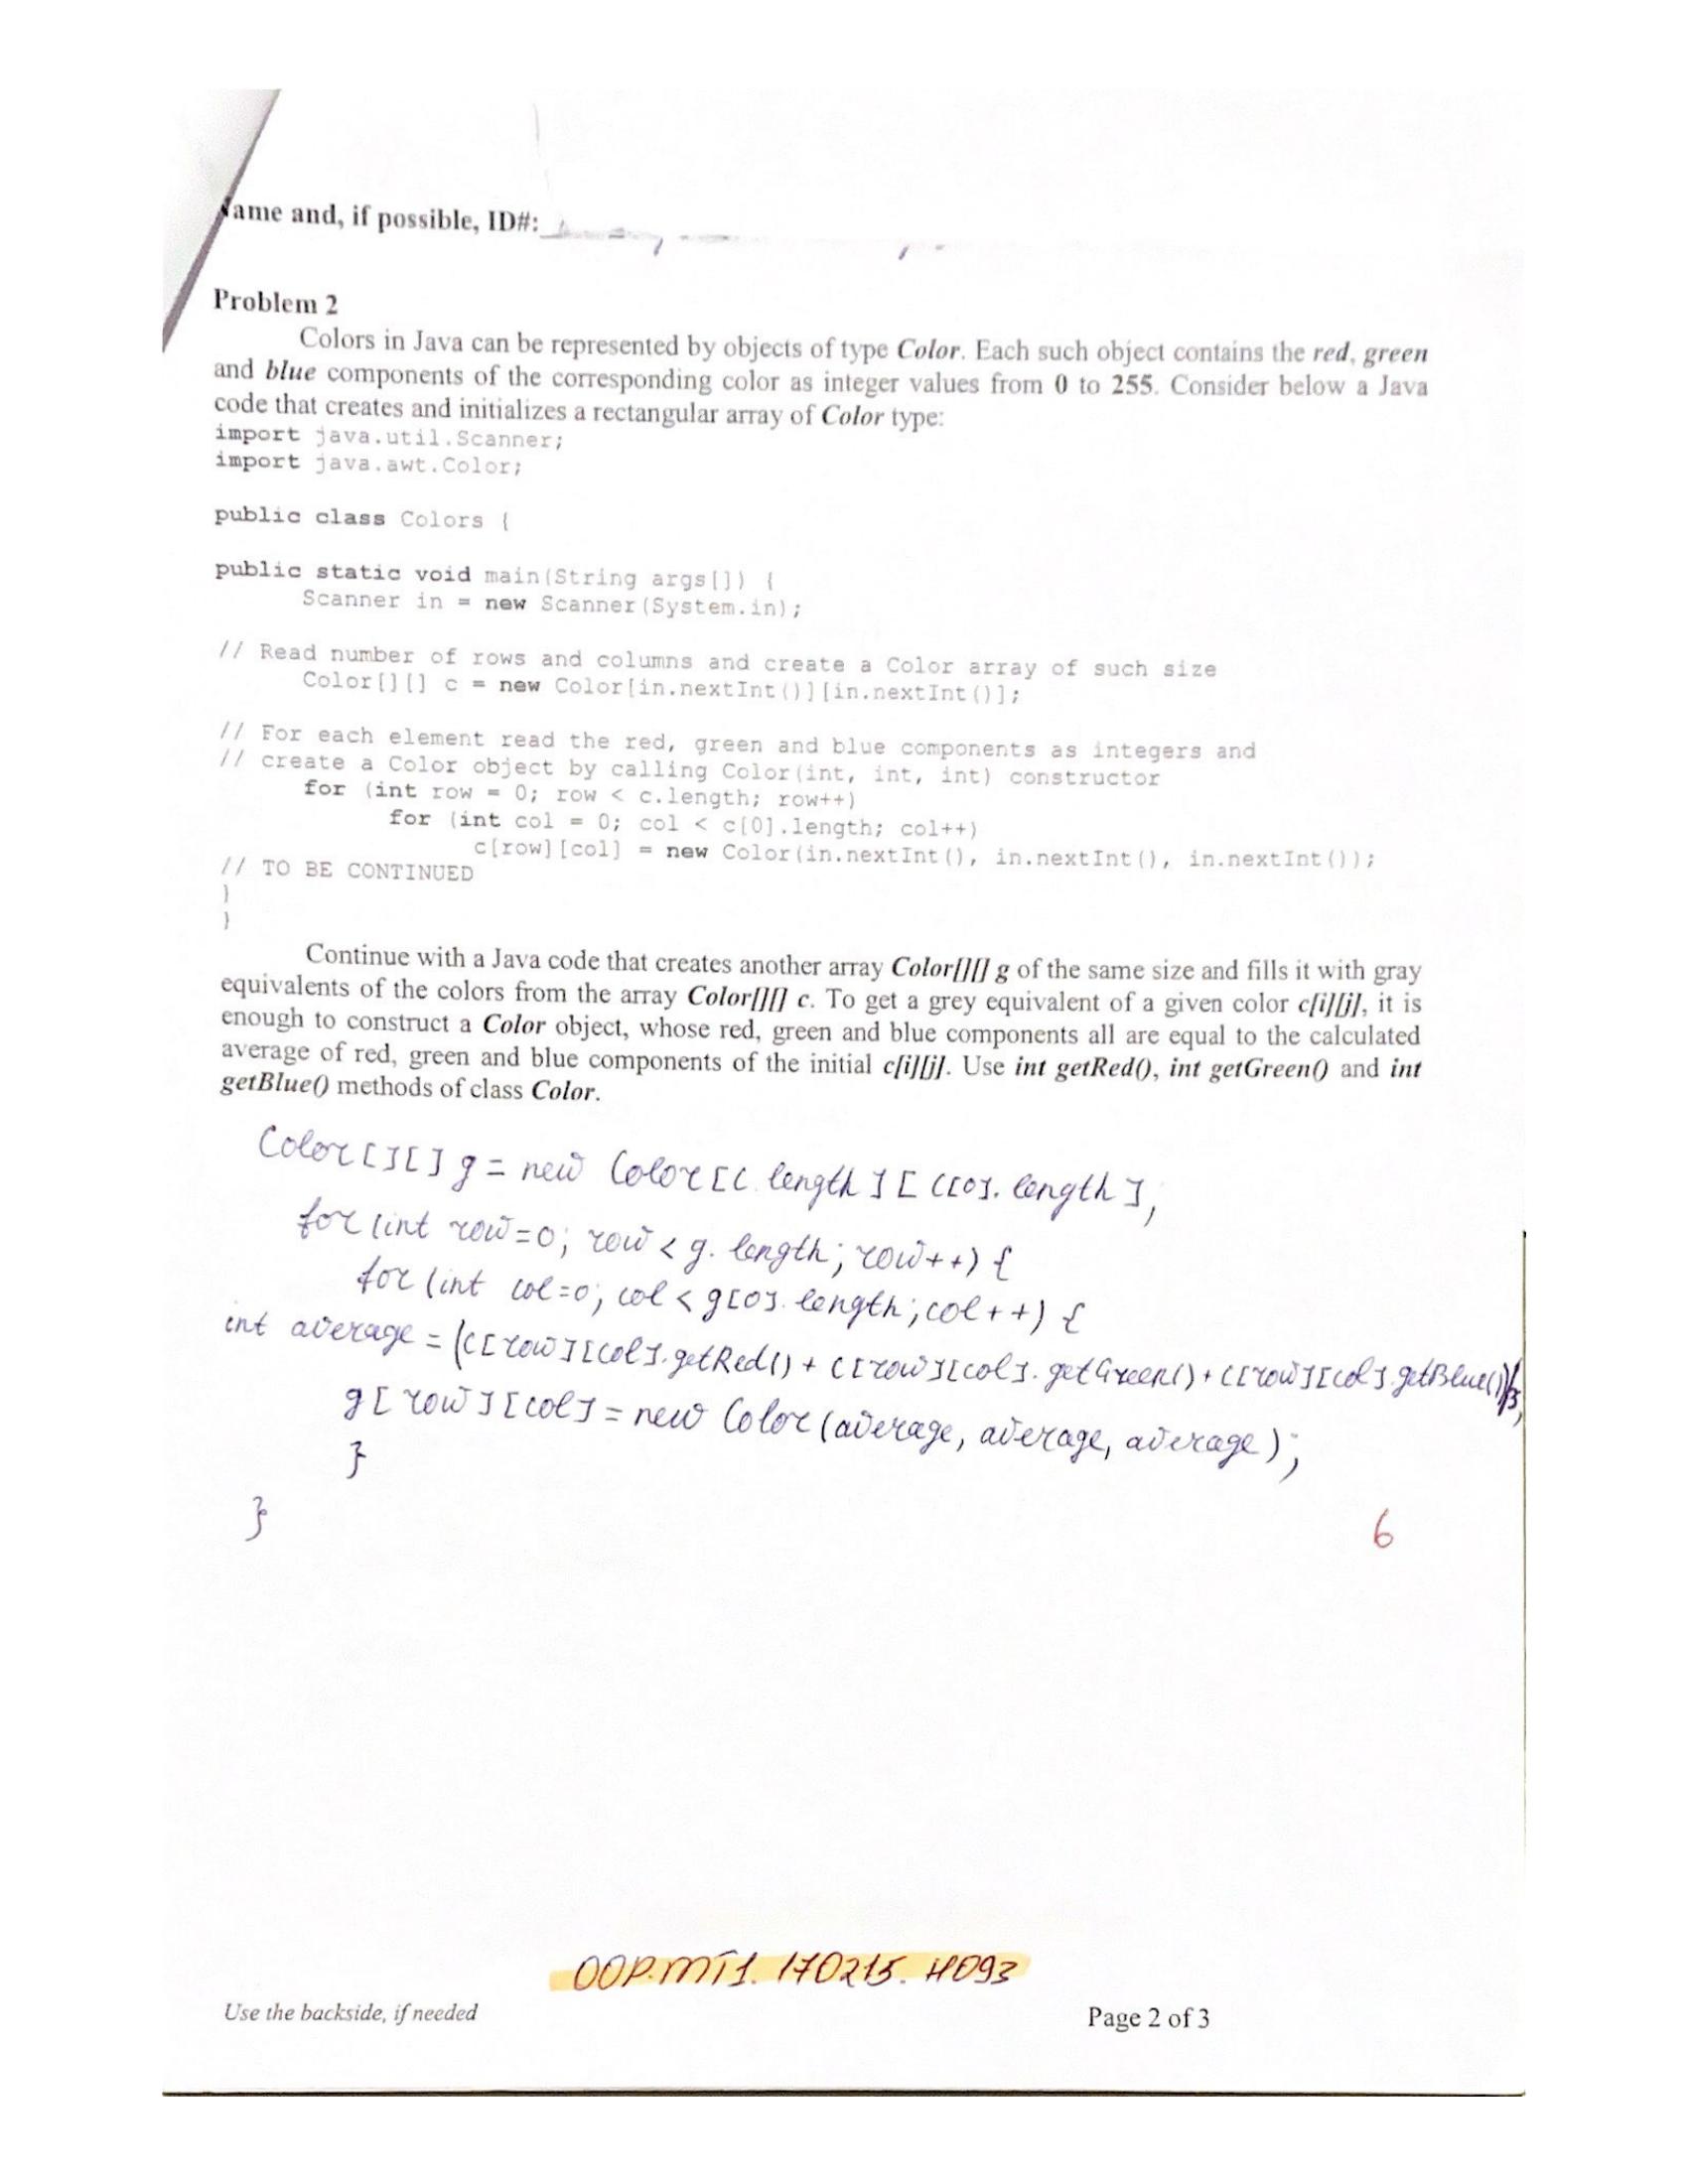 Name and, if possible, ID#:
Problem 2
Colors in Java can be represented by objects of type Color. Each such object contains the red, green
and blue components of the corresponding color as integer values from 0 to 255. Consider below a Java
code that creates and initializes a rectangular array of Color type:
import java.util.Scanner;
import java.awt.Color;
public class Colors {
public static void main(String args[]) {
Scanner in = new Scanner(System.in);
// Read number of rows and columns and create a Color array of such size
Color[][] c = new Color[in.nextInt()][in.nextInt()];
// For each element read the red, green and blue components as integers and
// create a Color object by calling Color(int, int, int) constructor
for (int row = 0; row < c.length; row++)
for (int col = 0; col < c[0].length; col++)
c[row][col] = new Color(in.nextInt(), in.nextInt(), in.nextInt());
// TO BE CONTINUED
}
}
Continue with a Java code that creates another array Color[][] g of the same size and fills it with gray
equivalents of the colors from the array Color[][] c. To get a grey equivalent of a given color c[i][j], it is
enough to construct a Color object, whose red, green and blue components all are equal to the calculated
average of red, green and blue components of the initial c[i][j]. Use int getRed(), int getGreen() and int
getBlue() methods of class Color.
Color[][] g = new Color[c.length][c[0].length];
for (int row=0; row < g.length; row++) {
for (int col=0; col < g[0].length; col++) {
int average = (c[row][col].getRed() + c[row][col].getGreen() + c[row][col].getBlue())/3;
g[row][col] = new Color(average, average, average);
}
}
6
OOP.MT1.170215.H093
Use the backside, if needed
Page 2 of 3